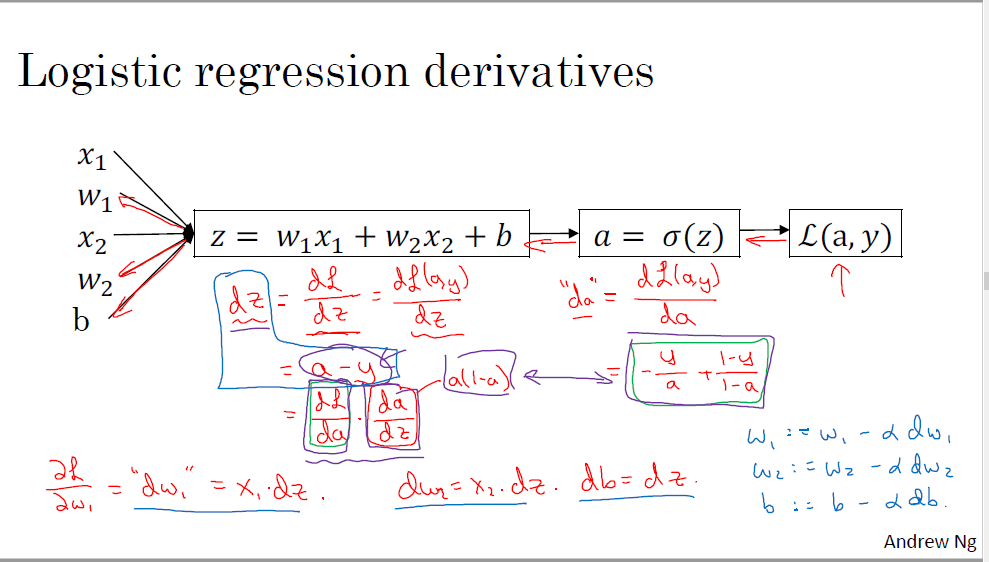 Logistic regression derivatives
x₁
w₁
x₂
w₂
b
z = w₁x₁ + w₂x₂ + b
a = σ(z)
ℒ(a, y)
dz = dℒ/dz = dℒ(a,y)/dz
= a - y
= dℒ/da · da/dz
a(1-a)
"da" = dℒ(a,y)/da
= -y/a + 1-y/1-a
∂ℒ/∂w₁ = "dw₁" = x₁·dz.
dw₂ = x₂·dz.
db = dz.
w₁ := w₁ - α dw₁
w₂ := w₂ - α dw₂
b := b - α db.
Andrew Ng